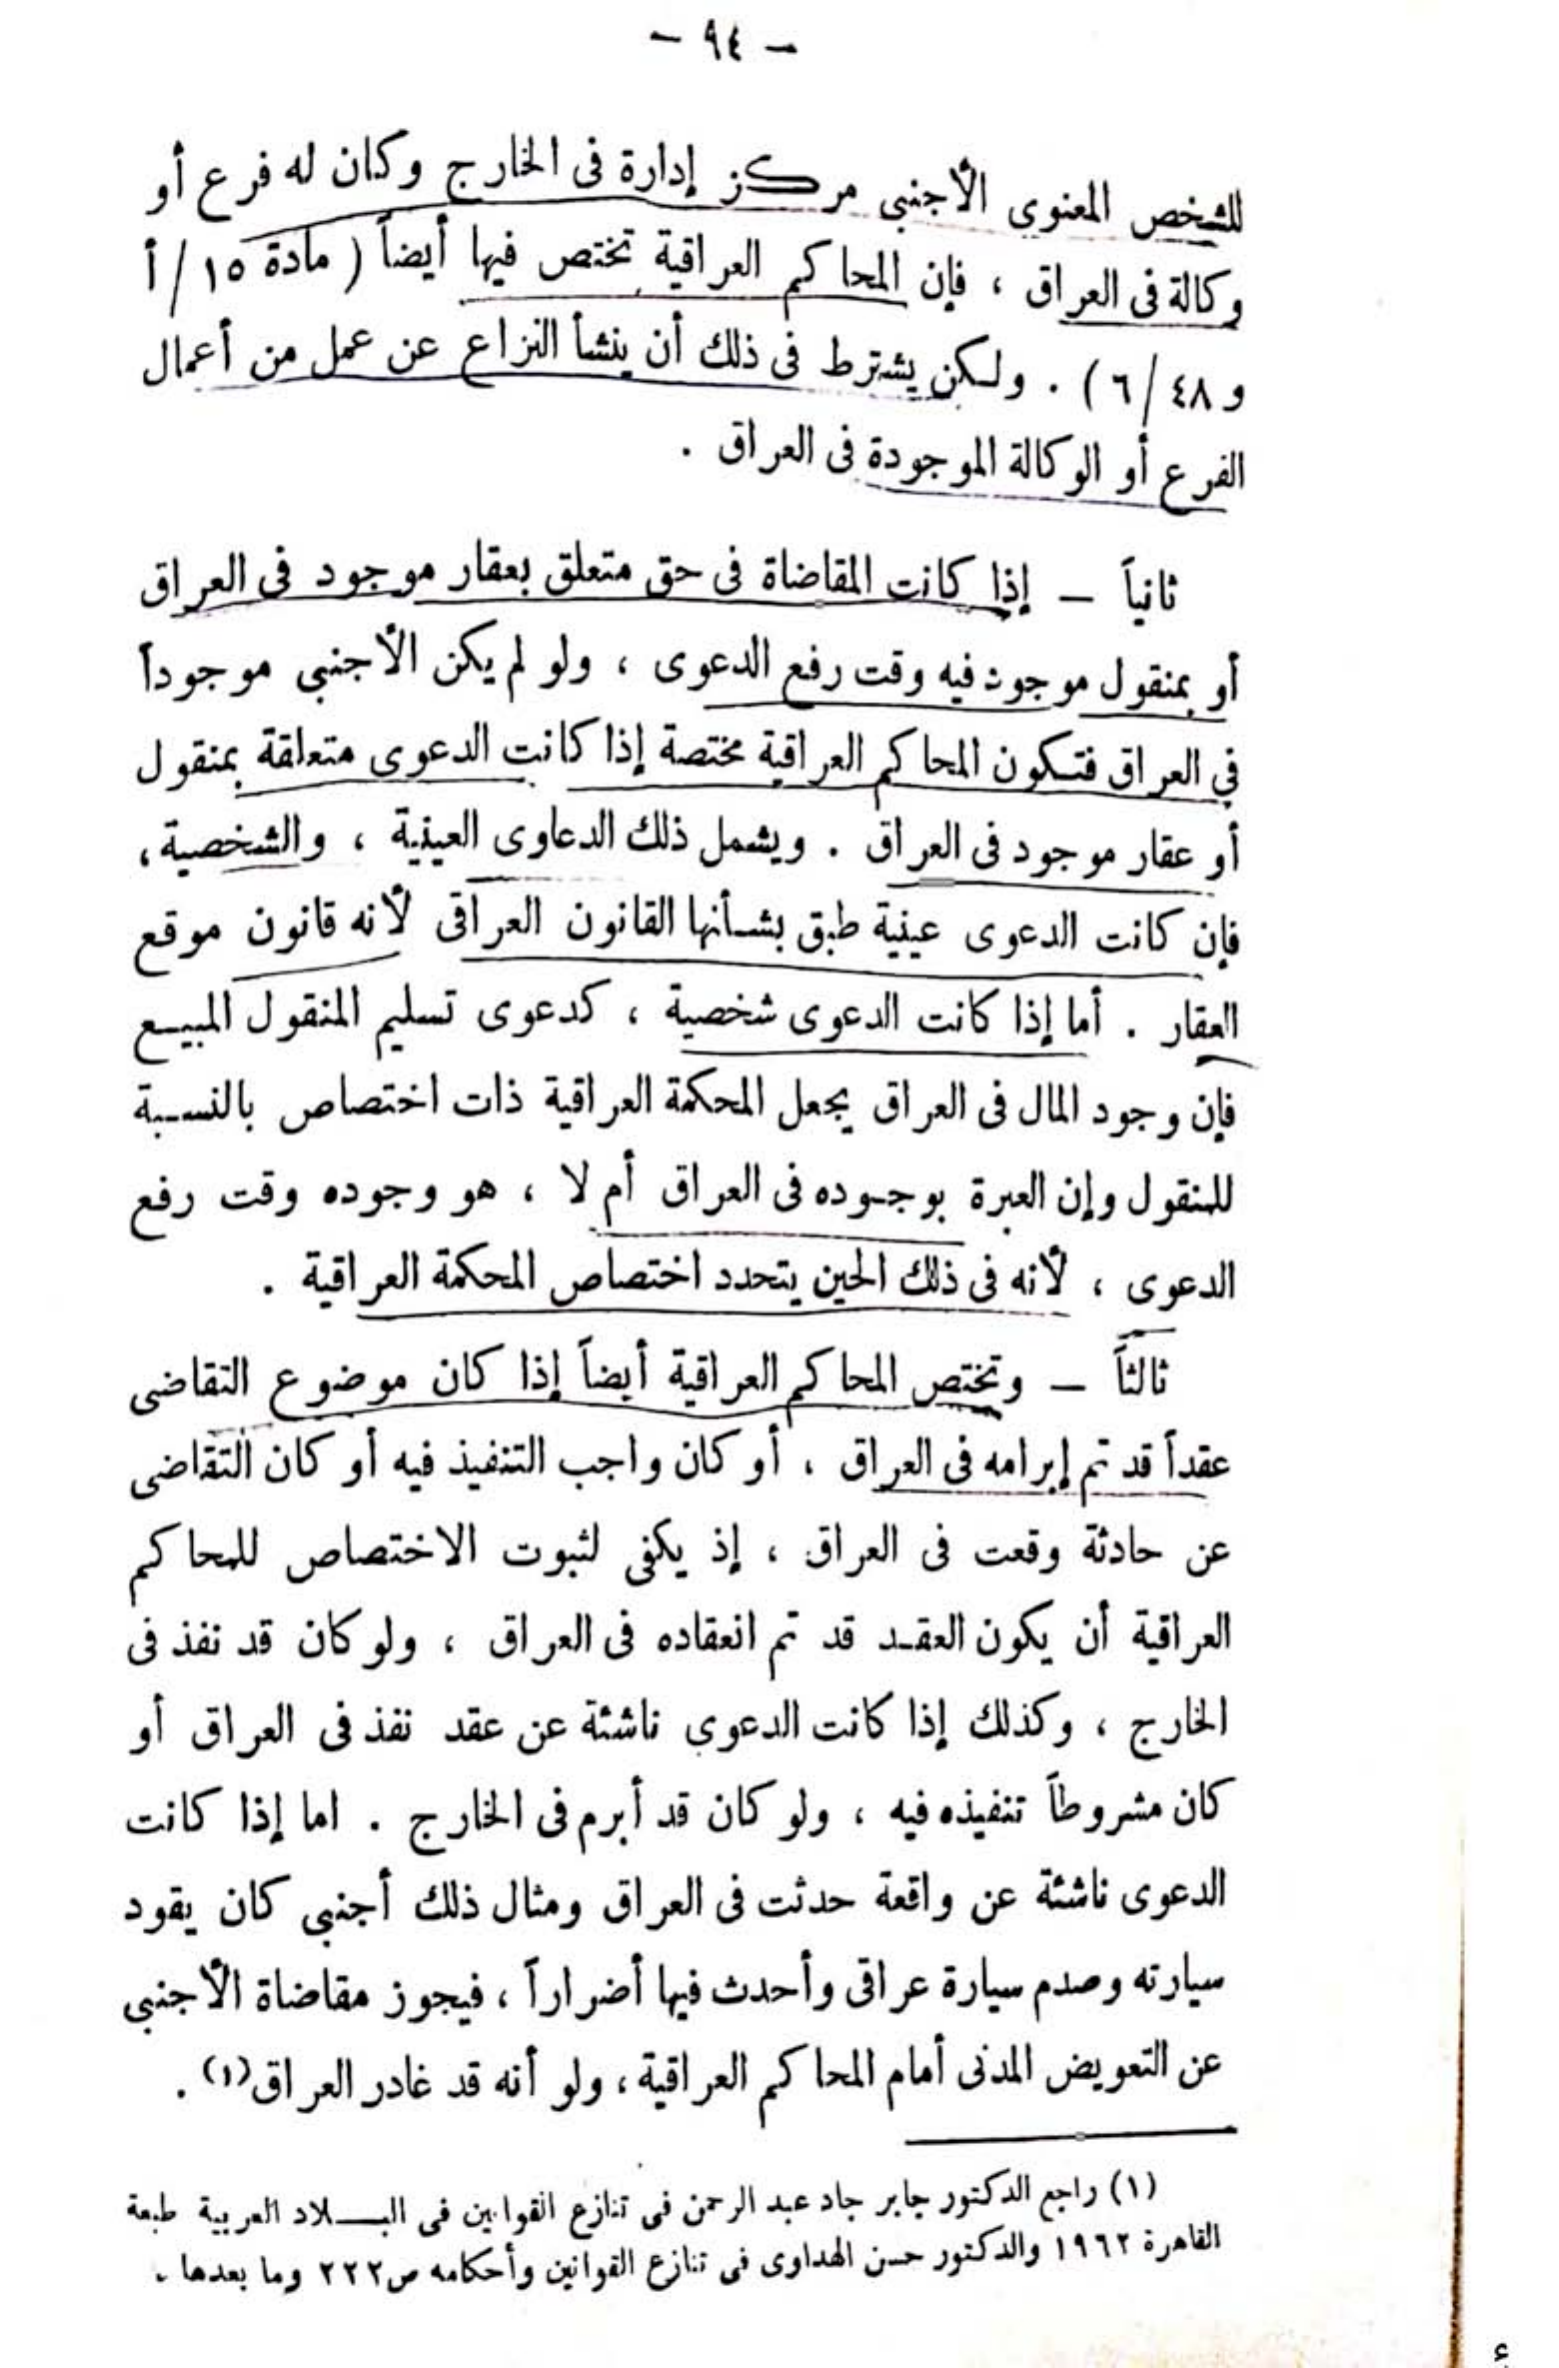 — ٩٤ —
للشخص المعنوى الأجنبى مركز إدارة فى الخارج وكان له فرع أو
وكالة فى العراق ، فإن المحاكم العراقية تختص فيها أيضاً ( مادة ١٥ / أ
و ٤٨ / ٦ ) . ولكن يشترط فى ذلك أن ينشأ النزاع عن عمل من أعمال
الفرع أو الوكالة الموجودة فى العراق .
ثانياً — إذا كانت المقاضاة فى حق متعلق بعقار موجود فى العراق
أو بمنقول موجود فيه وقت رفع الدعوى ، ولو لم يكن الأجنبى موجوداً
في العراق فتكون المحاكم العراقية مختصة إذا كانت الدعوى متعلقة بمنقول
أو عقار موجود فى العراق . ويشمل ذلك الدعاوى العينية ، والشخصية ،
فإن كانت الدعوى عينية طبق بشأنها القانون العراقى لأنه قانون موقع
العقار . أما إذا كانت الدعوى شخصية ، كدعوى تسليم المنقول المبيع
فإن وجود المال فى العراق يجعل المحكمة العراقية ذات اختصاص بالنسبة
للمنقول وإن العبرة بوجوده فى العراق أم لا ، هو وجوده وقت رفع
الدعوى ، لأنه فى ذلك الحين يتحدد اختصاص المحكمة العراقية .
ثالثاً — وتختص المحاكم العراقية أيضاً إذا كان موضوع التقاضى
عقداً قد تم إبرامه فى العراق ، أو كان واجب التنفيذ فيه أو كان التقاضى
عن حادثة وقعت فى العراق ، إذ يكفى لثبوت الاختصاص للمحاكم
العراقية أن يكون العقد قد تم انعقاده فى العراق ، ولو كان قد نفذ فى
الخارج ، وكذلك إذا كانت الدعوى ناشئة عن عقد نفذ فى العراق أو
كان مشروطاً تنفيذه فيه ، ولو كان قد أبرم فى الخارج . اما إذا كانت
الدعوى ناشئة عن واقعة حدثت فى العراق ومثال ذلك أجنبى كان يقود
سيارته وصدم سيارة عراقى وأحدث فيها أضراراً ، فيجوز مقاضاة الأجنبى
عن التعويض المدنى أمام المحاكم العراقية ، ولو أنه قد غادر العراق(١) .
(١) راجع الدكتور جابر جاد عبد الرحمن فى تنازع القوانين فى البلاد العربية طبعة
القاهرة ١٩٦٢ والدكتور حسن الهداوى فى تنازع القوانين وأحكامه ص٢٢٢ وما بعدها .